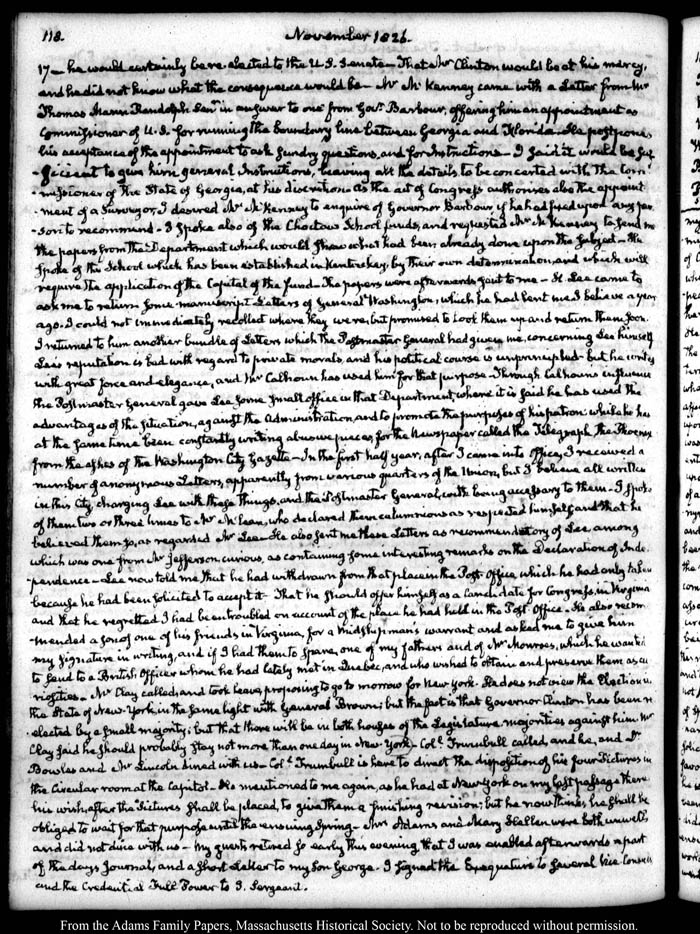 118.
November 1826.
17 — he would certainly be re-elected to the U.S. Senate — That Mr Clinton would be at his mercy,
and he did not know what the consequence would be — Mr McKenney came with a Letter from Mr
Thomas Mann Randolph Senr in answer to one from Govr Barbour, offering him an appointment as
Commissioner of U.S. for running the boundary line between Georgia and Florida — He postpones
his acceptance of the appointment to ask sundry questions, and for Instructions — I said it would be suf-
-ficient to give him general Instructions, leaving all the details to be concerted with the Com-
-missioner of the State of Georgia, at his discretion. As the act of Congress authorises also the appoint-
-ment of a Surveyor, I desired Mr McKenney to enquire of Governor Barbour if he had fixed upon any per-
-son to recommend — I spoke also of the Choctaw School funds, and requested Mr McKenney to send me
the papers from the Department which would show what had been already done upon the subject — He
spoke of the School which has been established in Kentuckey, by their own determination, and which will
require the application of the Capital of the fund — The papers were afterwards sent to me — H. Lee came to
ask me to return some manuscript Letters of General Washington, which he had lent me I believe a year
ago. I could not immediately recollect where they were, but promised to look them up and return them soon.
I returned to him another bundle of Letters which the Postmaster General had given me, concerning Lee himself
Lee's reputation is bad with regard to private morals, and his political course is unprincipled — but he writes
with great force and elegance, and Mr Calhoun has used him for that purpose. Through Calhoun's influence
the Postmaster General gave Lee some small office in that Department, where it is said he has used the
advantages of the situation, against the Administration, and to promote the purposes of his patron while he has
at the same time been constantly writing abusive pieces, for the Newspaper called the Telegraph, the Phoenix
from the ashes of the Washington City Gazette — In the first half year, after I came into Office, I received a
number of anonymous Letters, apparently from various quarters of the Union, but I believe all written
in this City, charging Lee with these things, and the Postmaster General, with being accessary to them — I spoke
of them two or three times to Mr McLean, who declared them calumnious as respected himself, and that he
believed them so, as regarded Mr Lee — He also sent me these Letters as recommendatory of Lee among
which was one from Mr Jefferson, curious, as containing some interesting remarks on the Declaration of Inde-
-pendence — Lee now told me that he had withdrawn from that place in the Post-Office, which he had only taken
because he had been solicited to accept it — That he should offer himself as a Candidate for Congress, in Virginia
and that he regretted I had been troubled on account of the place he had held in the Post-Office — He also recom-
-mended a son of one of his friends in Virginia, for a Midshipman's warrant and asked me to give him
my signature in writing, and if I had them to spare, one of my father's and of Mr Monroe's, which he wanted
to send to a British Officer whom he had lately met in Quebec, and who wished to obtain and preserve them as cu-
riosities — Mr Clay called, and took leave, proposing to go to morrow for New York — He does not view the Election in
the State of New-York, in the same light with General Brown; but the fact is that Governor Clinton has been re-
elected by a small majority; but that there will be in both houses of the Legislature majorities against him. Mr
Clay said he should probably stay not more than one day in New York — Coll Trumbull called, and he, and Dr
Bowles and Mr Lincoln dined with us — Coll Trumbull is here to direct the disposition of his four Pictures in
the Circular room at the Capitol — He mentioned to me again, as he had at New York on my last passage there
his wish, after the Pictures shall be placed, to give them a finishing revision; but he now thinks he shall be
obliged to wait for that purpose until the ensuing Spring — Mrs Adams and Mary Hellen were both unwell
and did not dine with us — My guests retired so early this evening, that I was enabled afterwards a part
of the days Journal, and a short Letter to my Son George. I signed the Exequaturs to several Vice Consuls
and the Credential Full Power to J. Sergeant.
From the Adams Family Papers, Massachusetts Historical Society. Not to be reproduced without permission.